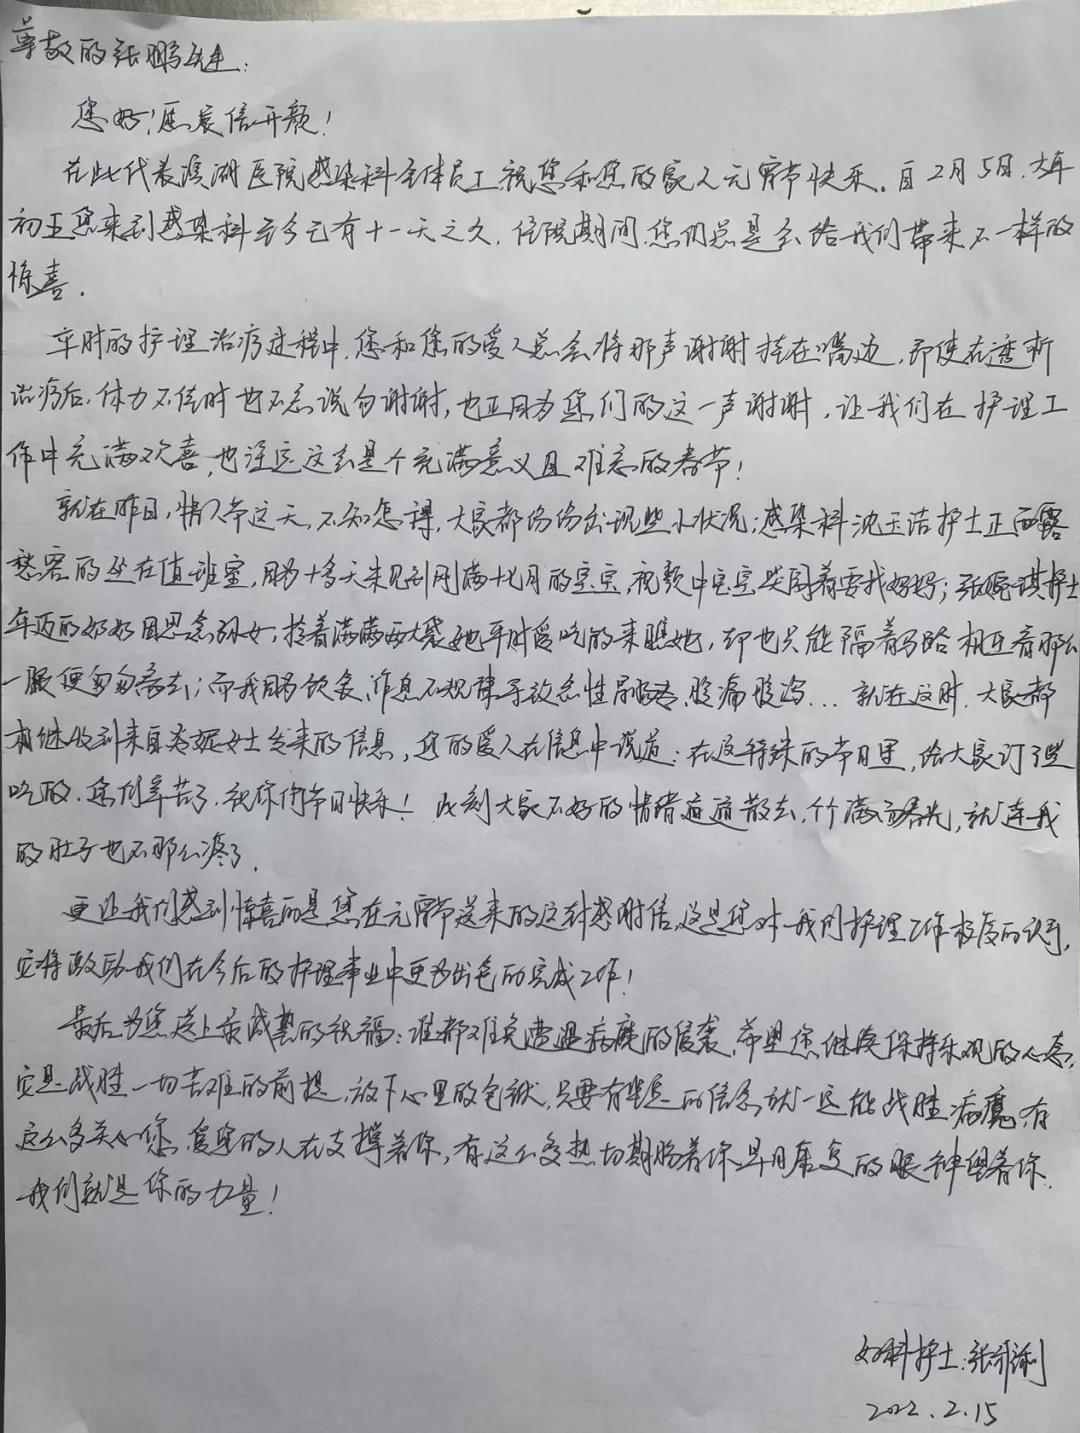 尊敬的张鹏先生：
您好！愿展信开颜！
在此代表滨湖医院感染科全体员工祝您和您的家人元宵节快乐。自2月5日，大年
初五您来到感染科至今已有十一天之久，住院期间，您们总是会给我们带来不一样的
惊喜．
平时的护理治疗过程中，您和您的爱人总会将那声谢谢挂在嘴边，即使在透析
治疗后，体力不佳时也不忘说句谢谢，也正因为您们的这一声谢谢，让我们在护理工
作中充满欢喜，也注定这会是个充满意义且难忘的春节！
就在昨日，情人节这天，不知怎得，大家都份份出现些小状况；感染科沈玉洁护士正面露
愁容的坐在值班室，因为十多天未见到刚满十七月的宝宝，视频中宝宝哭闹着要找妈妈；张婉琪护士
年迈的奶奶因思念孙女，拎着满满两大袋她平时爱吃的来瞧她，却也只能隔着马路相互看那么
一眼便匆匆离去；而我因为饮食、作息不规律导致急性肠胃炎，腹痛腹泻... 就在这时，大家都
相继收到来自女士发来的信息，您的爱人在信息中说道：在这特殊的节日里，给大家订了些
吃的，您们辛苦了，祝你们节日快乐！此刻大家不好的情绪通通散去，个个满面春光，就连我
的肚子也不那么疼了．
更让我们感到惊喜的是您在元宵节送来的这封感谢信，这是您对我们护理工作极度的认可，
它将激励我们在今后的护理事业中更为出色的完成工作！
最后为您送上最诚挚的祝福：谁都难免遭遇病魔的侵袭，希望您继续保持乐观的心态，
它是战胜一切苦难的前提，放下心里的包袱，只要有坚定的信念就一定能战胜病魔，有
这么多关心您、爱您的人在支撑着你，有这么多热切期盼着你早日康复的眼神望着你．
我们就是你的力量！
护士：张
2022.2.15